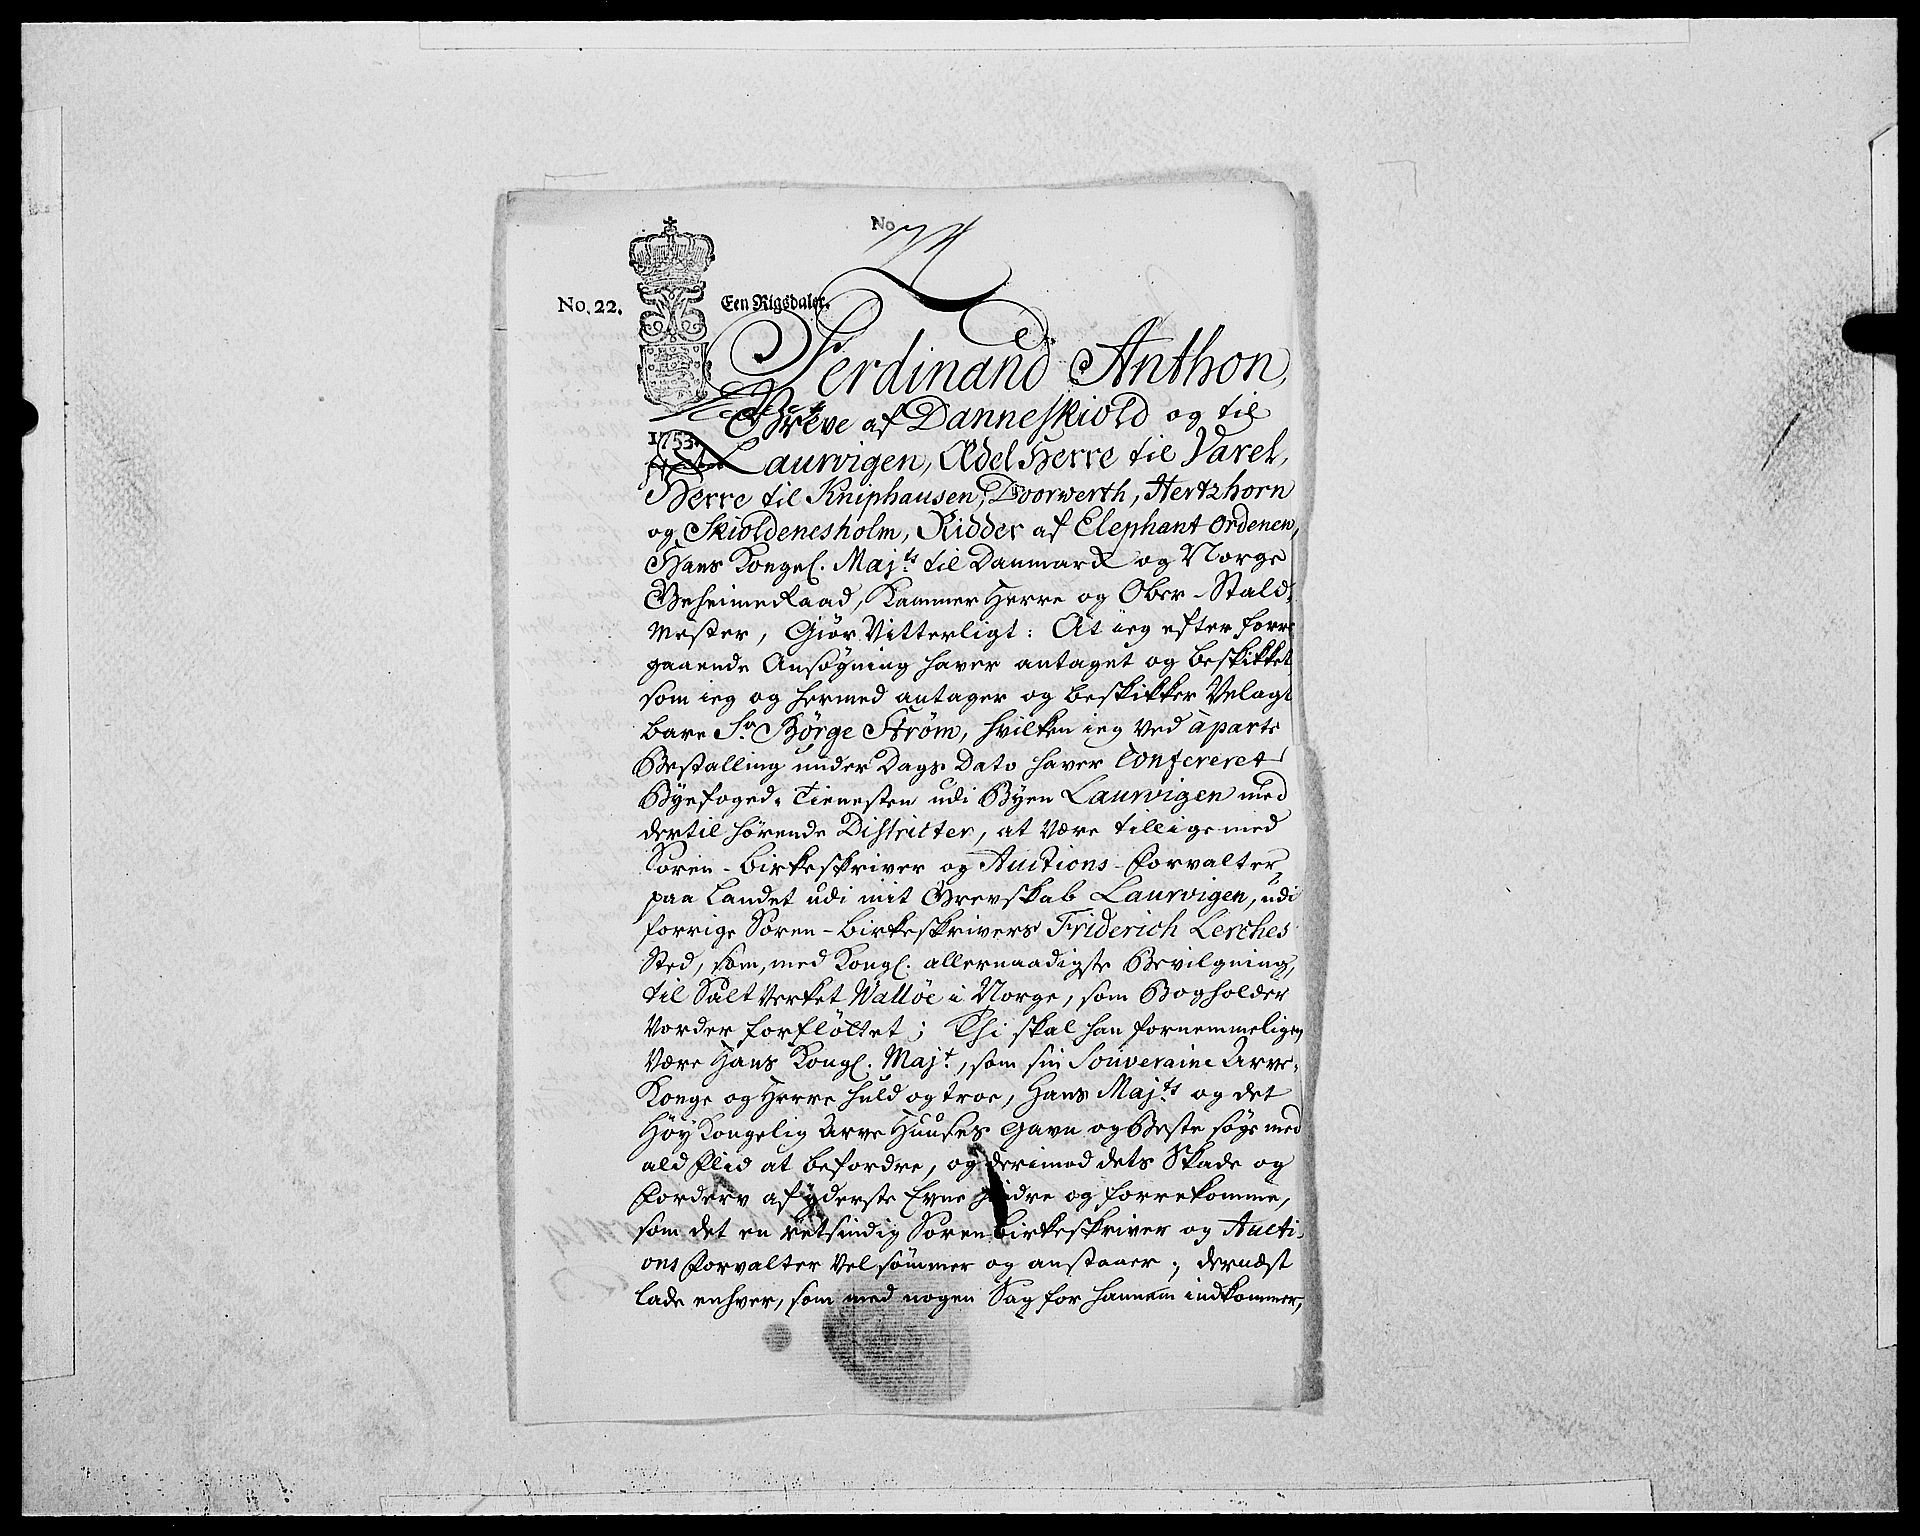 No 74
No. 22.
Een Rigsdaler.
Ferdinand Anthon,
Greve af Danneskiold og til
1753.
Laurvigen, Ædel Herre til Varel,
Herre til Kniphausen, Doorwerth, Hertzhorn
og Skioldenesholm, Ridder af Elephant Ordenen,
Hans Kongel. Majts til Danmark og Norge
GeheimeRaad, Kammer Herre og Ober-Stald-
Mester, Giør Vitterligt: At ieg efter forre
gaaende Ansøgning haver antaget og beskikket
som ieg og hermed antager og beskikker Velagt
bare Sr. Børge Strøm, hvilken ieg ved àparte
Bestalling under Dags Dato haver Confereret
Byefoged-Tienesten udi Byen Laurvigen med
dertil hørende Districter, at være tillige med
Soren-Birkeskriver og Auctions-Forvalter
paa Landet udi mit Grevskab Laurvigen, udi
forrige Soren-Birkeskrivers Friderich Lerches
Sted, som, med Kongl. allernaadigste Bevilgning,
til Salt Verket Walløe i Norge, som Bogholder
vorder forfløttet; Thi skal han fornemmeligen
være Hans Kongl. Majt., som sin Souveraine Arve-
Konge og Herre huld og troe, Hans Majts og det
Høy Kongelig Arve Huuses Gavn og Beste søge med
ald Flid at befordre, og derimod dets Skade og
Forderv af yderste Evne hindre og forrekomme,
som det en retsindig Sorenbirkeskriver og Aucti-
ons Forvalter vel sømmer og anstaaer; dernæst
lade enhver, som med nogen Sag for hannem indkommer,